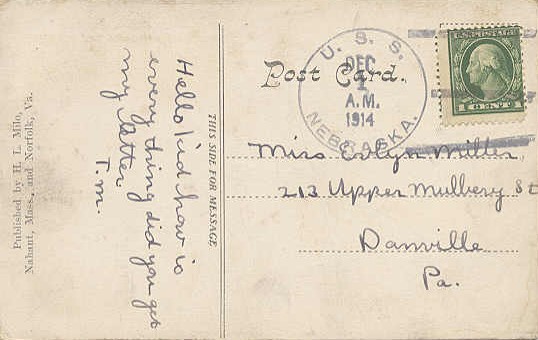 Published by H. L. Milo,
Nahant, Mass., and Norfolk, Va.
Hello kid how is
every thing did you get
my letter
T. m.
THIS SIDE FOR MESSAGE
Post Card.
U. S. S.
DEC
1
A.M.
1914
NEBRASKA.
1 CENT 1
Miss Evlyn Miller
213 Upper Mulbery St
Danville
Pa.